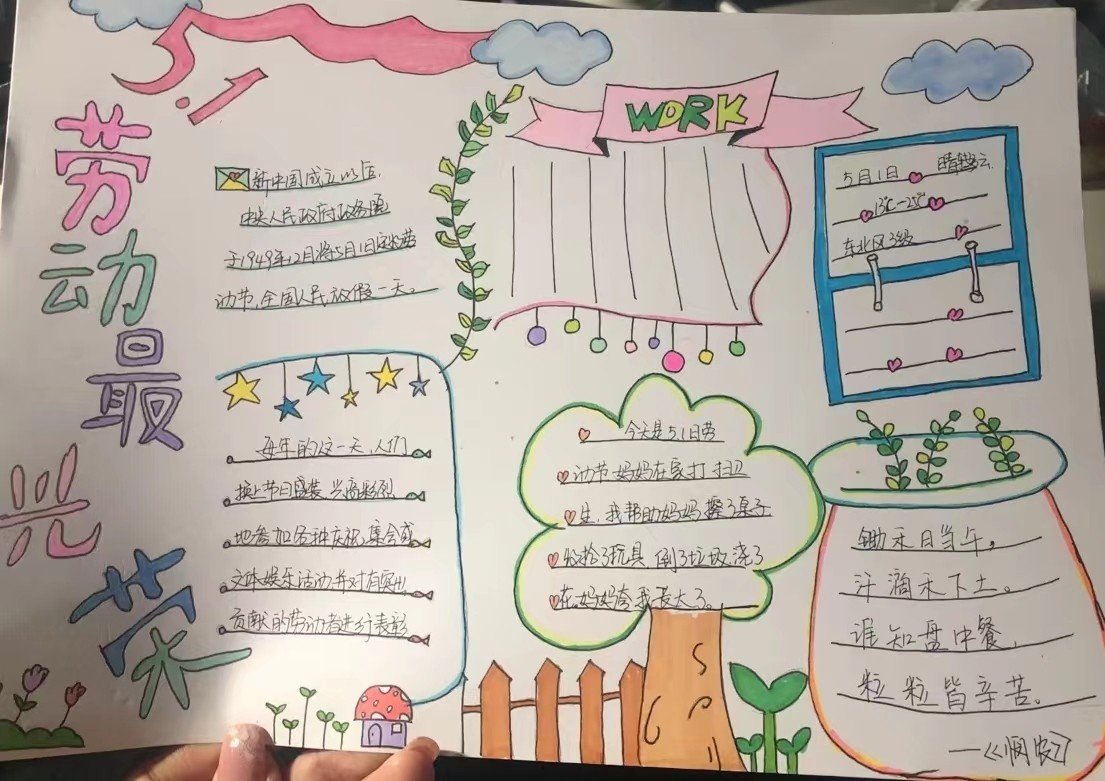 5.1
劳动最光荣
新中国成立以后,
中央人民政府政务院
于1949年12月将5月1日定为劳
动节,全国人民放假一天。
WORK
5月1日 晴转多云
13℃-25℃
东北风3级
每年的这一天,人们
换上节日盛装,兴高彩烈
地参加各种庆祝,集会或
文体娱乐活动并对有突出
贡献的劳动者进行表彰
今天是5.1日劳
动节妈妈在家打扫卫
生,我帮助妈妈擦了桌子
收拾了玩具 倒了垃圾,浇了
花,妈妈夸我长大了。
锄禾日当午,
汗滴禾下土。
谁知盘中餐,
粒粒皆辛苦。
—《悯农》